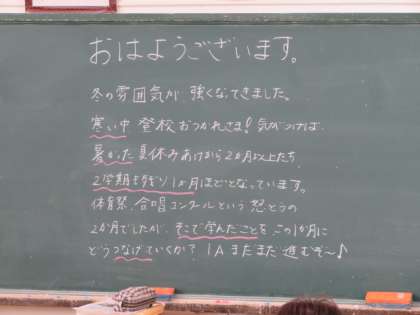 おはようございます。
冬の雰囲気が強くなってきました。
寒い中 登校おつかれさま！気がつけば
暑かった夏休みあけから2か月以上たち、
2学期も残り1か月ほどとなっています。
体育祭、合唱コンクールという怒とうの
2か月でしたが、そこで学んだことをこの1か月に
どうつなげていくか？1Aまだまだ進むぞ〜♪